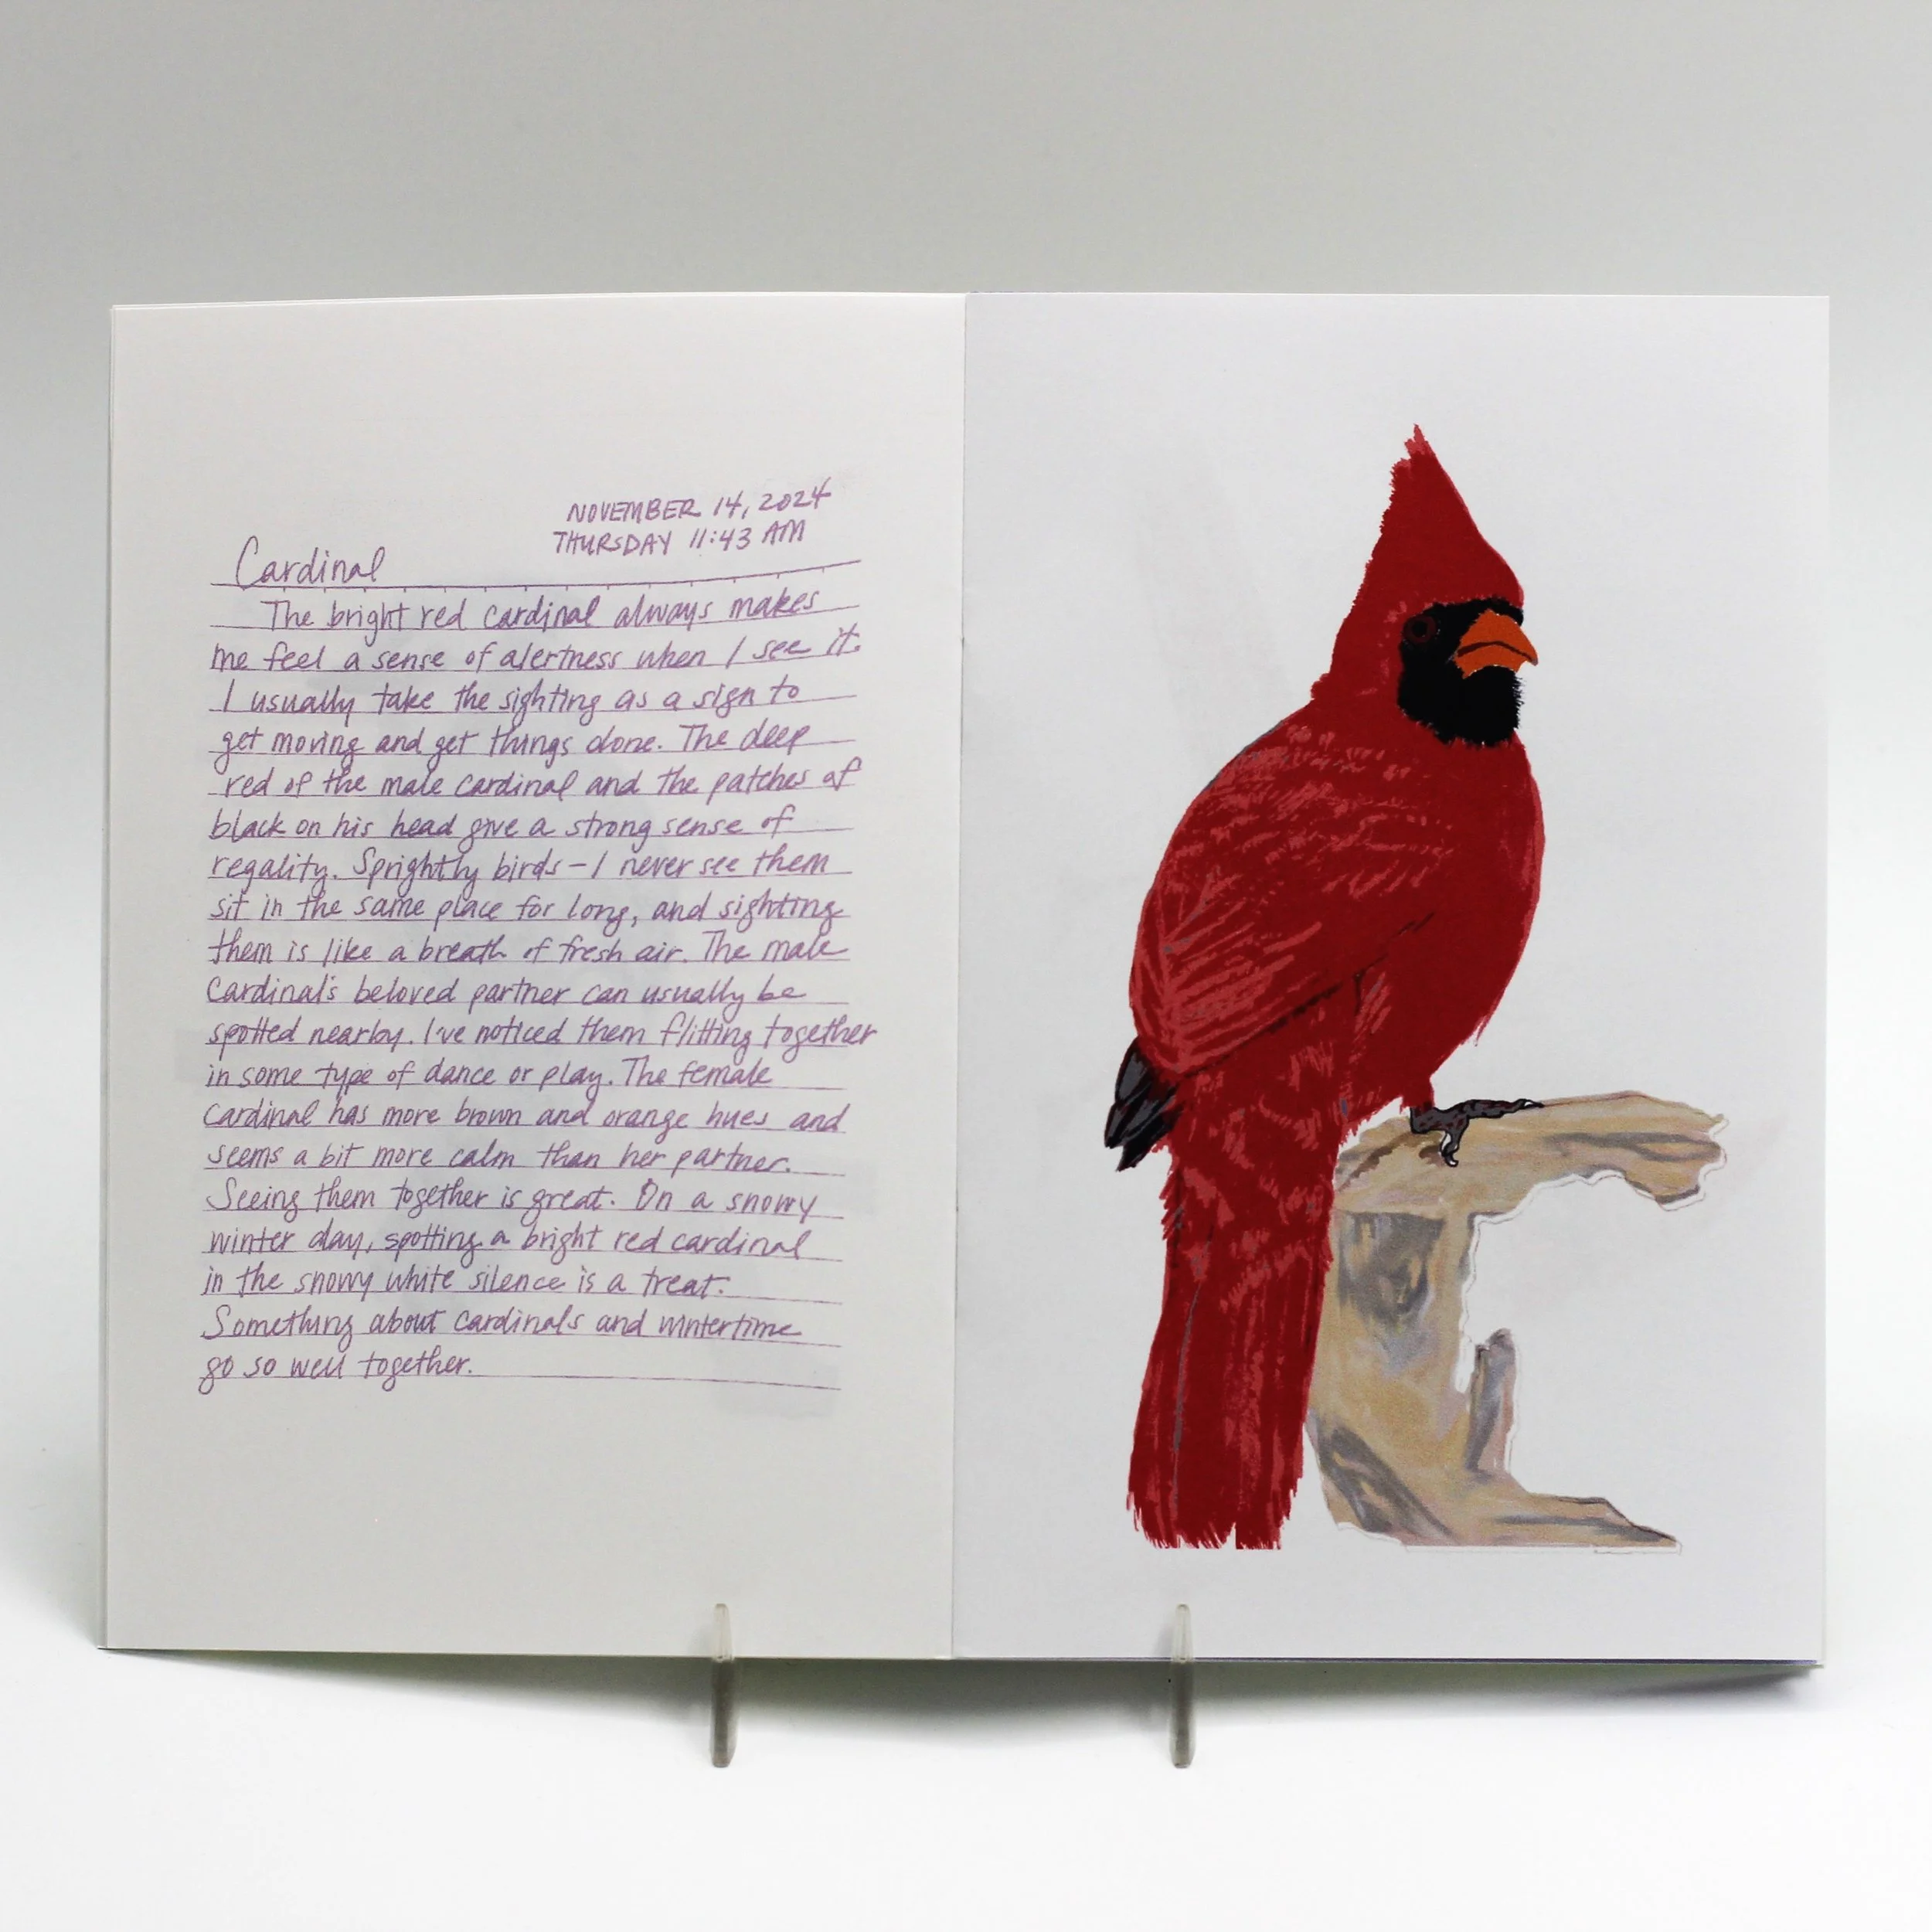 NOVEMBER 14, 2024
THURSDAY 11:43 AM
Cardinal
The bright red cardinal always makes
me feel a sense of alertness when I see it.
I usually take the sighting as a sign to
get moving and get things done. The deep
red of the male cardinal and the patches of
black on his head give a strong sense of
regality. Sprightly birds – I never see them
sit in the same place for long, and sighting
them is like a breath of fresh air. The male
Cardinal's beloved partner can usually be
spotted nearby. I've noticed them flitting together
in some type of dance or play. The female
cardinal has more brown and orange hues and
seems a bit more calm than her partner.
Seeing them together is great. On a snowy
winter day, spotting a bright red cardinal
in the snowy white silence is a treat.
Something about cardinals and wintertime
go so well together.